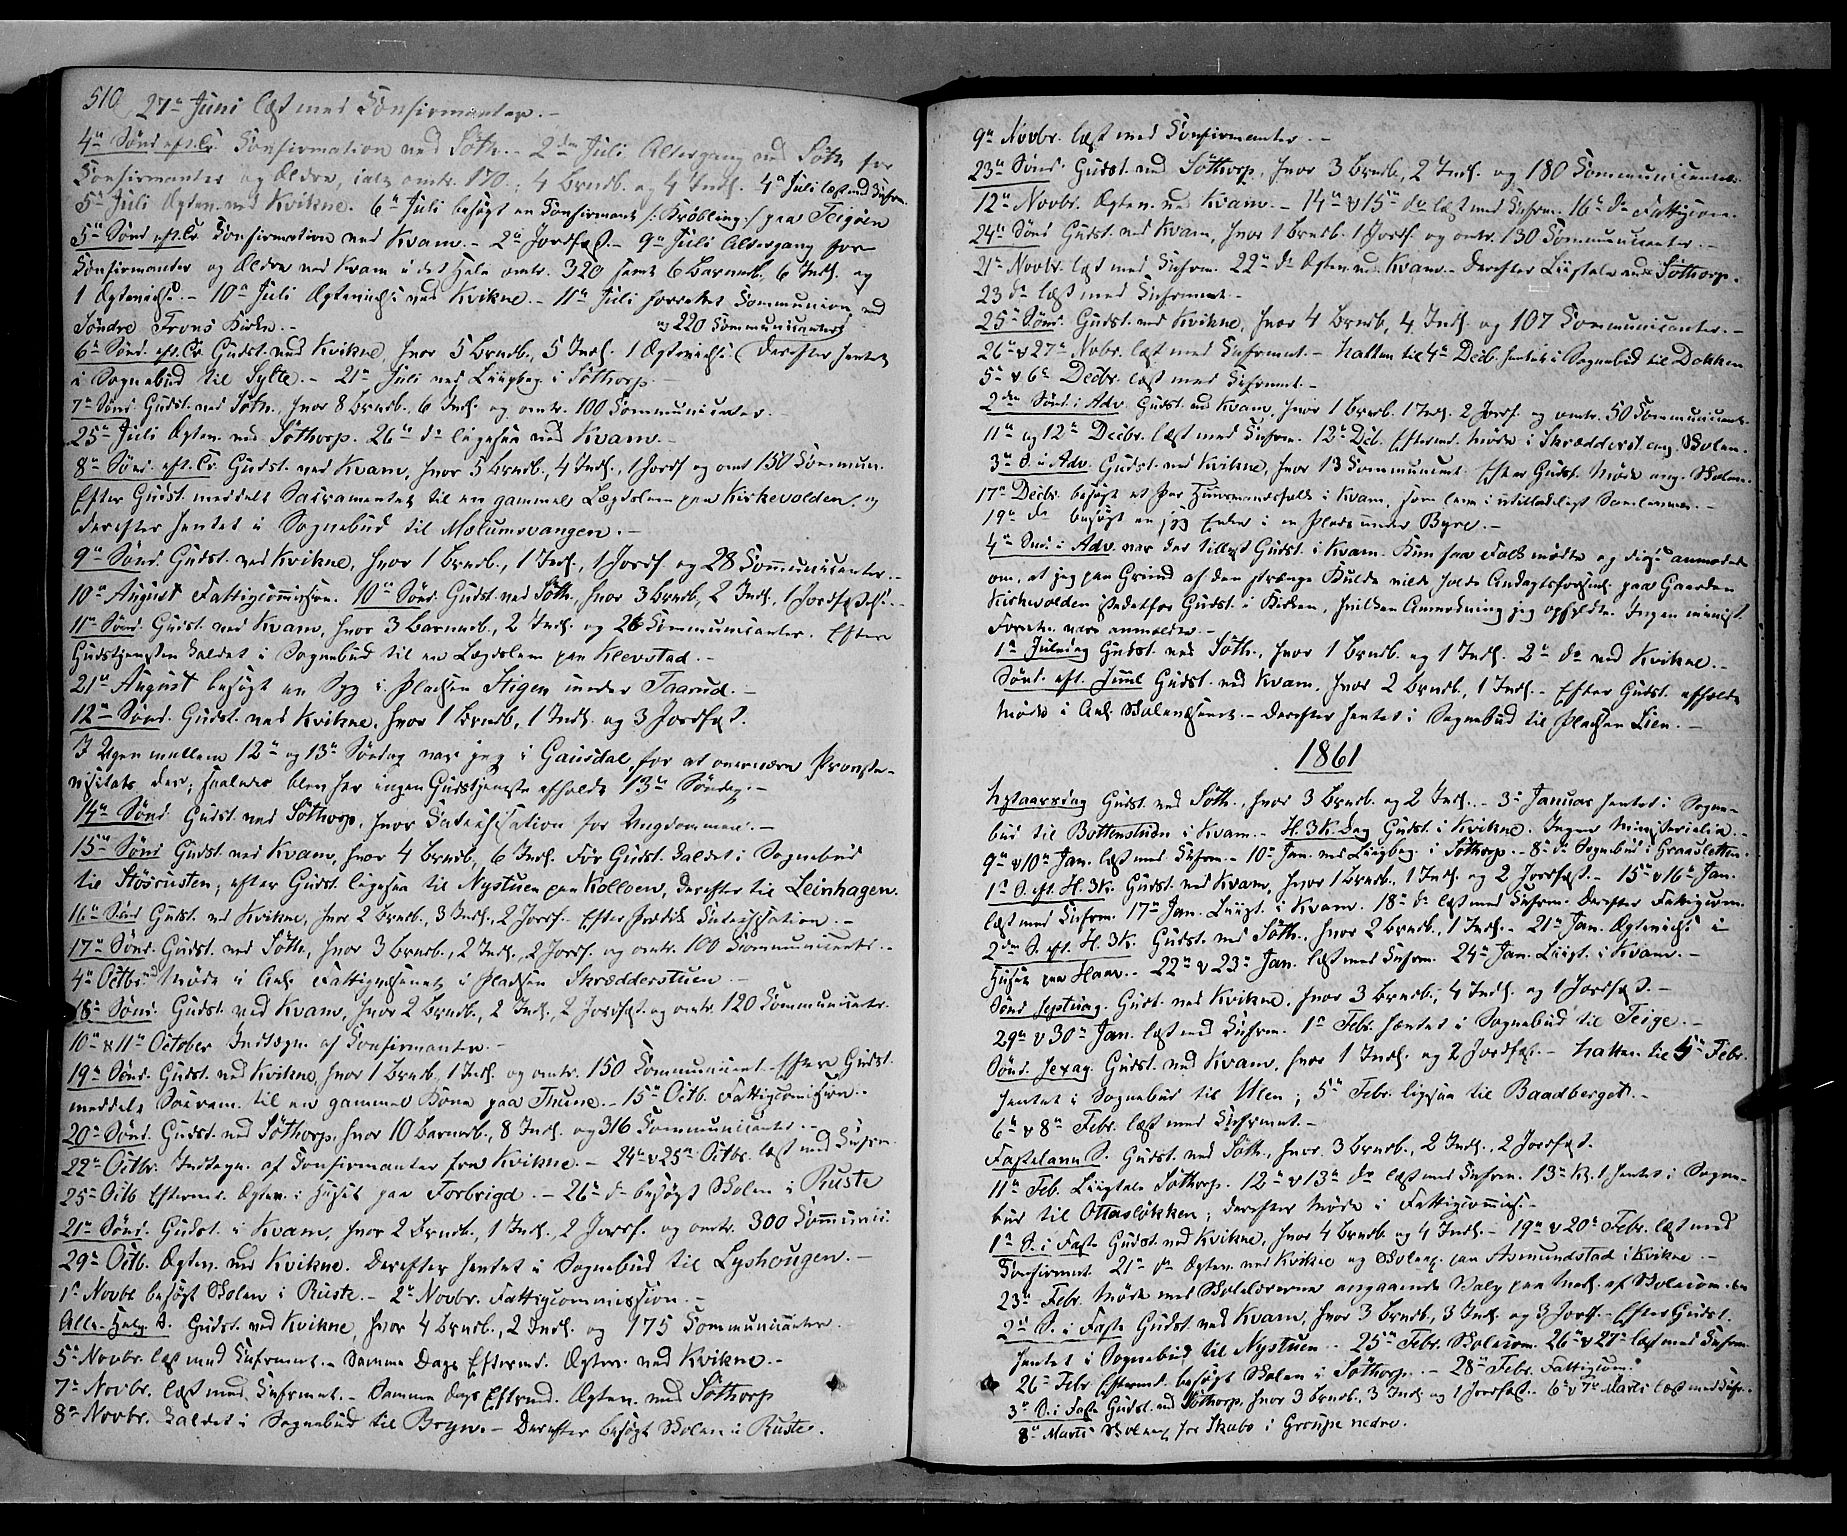 510
27de Juni læst med Confirmanter. -
4de Sønd. eft. Tr. Confirmation ved Søth. - 2den Juli Altergang ved Søth. for
Confirmanter og Ældre, ialt omtr. 170; 4 Brndb. og 4 Indl. 4de Juli læst med Cnfrm.
5te Juli Ægtev. ved Kvikne. 6te Juli besøgt en Confirmant /: Krøbling :/ paa Teigøen
5te Sønd. eft. Tr. Confirmation ved Kvam. - 2de Jordfæst. - 9de Juli Altergang for
Confirmanter og Ældre ved Kvam i det Hele omtr. 320 samt 6 Barnedb., 6 Indl. og
1 Ægtevielse. - 10de Juli Ægtevielse ved Kvikne. - 11te Juli forrettet Communion ved
Søndre Frons Kirke. -
6te Sønd. eft. Tr. Gudst. ved Kvikne, hvor 5 Brndb., 5 Indl. 1 Ægtevielse og 220 Communicanter. Derefter hentet
i Sognebud til Sylte. - 21de Juli ved Liigbeg. i Søthorp. -
7de Sønd. Gudst. ved Søth., hvor 8 Brndb., 6 Indl. og omtr. 100 Communicanter.
25de Juli Ægtev. ved Søthorp. 26de do ligesaa ved Kvam. -
8de Sønd. eft. Tr. Gudst. ved Kvam, hvor 5 Brndb., 4 Indl., 1 Jordf. og omt 150 Commun.
Efter Gudst. meddelt Sacramentet til en gammel Lægdslem paa Kirkevolden og
derefter hentet i Sognebud til Molumsvangen. -
9de Sønd. Gudst. ved Kvikne, hvor 1 Brndb., 1 Indl., 1 Jordf. og 28 Communicanter. -
10de August Fattigcommission. 10de Sønd. Gudst. ved Søth., hvor 3 Brndb., 2 Indl., 1 Jordfæstelse. -
11te Sønd. Gudst. ved Kvam, hvor 3 Barnedb., 2 Indl. og 26 Communicanter. Efter
Gudstjenesten kaldet i Sognebud til en Lægdslem paa Klevstad. -
21de August besøgt en Syg i Pladsen Stigen under Taarud. -
12te Sønd. Gudst. ved Kvikne, hvor 1 Brndb., 1 Indl. og 3 Jordfæst.
I Ugen mellem 12te og 13de Søndag var jeg i Gausdal, for at overvære Provste-
visitats der; saaledes blev her ingen Gudstjeneste afholdt 13de Søndag. -
14de Sønd. Gudst. ved Søthorp, hvor Catechisation for Ungdommen. -
15de Sønd. Gudst. ved Kvam, hvor 4 Brndb., 6 Indl. Før Gudst. kaldet i Sognebud
til Stösrusten; efter Gudst. ligesaa til Nystuen paa Kolloen, derefter til Leinhagen.
16de Sønd. Gudst. ved Kvikne, hvor 2 Brndb., 3 Indl., 2 Jordf. Efter Prædik Catechisation. -
17de Sønd. Gudst. ved Søth., hvor 3 Brndb., 2 Indl., 2 Jordf. og omtr. 100 Communicanter. -
4de Octbr. Møde i Anl. Fattigvæsenet i Pladsen Skrædderstuen. -
18de Sønd. Gudst. ved Kvam, hvor 2 Brndb., 2 Indl., 2 Jordfæst. og omtr. 120 Communicanter.
10de & 11te October Indtegn. af Confirmanter. -
19de Sønd. Gudst. ved Kvikne, hvor 1 Brndb., 1 Indl. og omtr. 150 Communicant. Efter Gudst.
meddelt Sacram. til en gammel Kone paa Thune. - 15de Octb. Fattigcomission. -
20de Sønd. Gudst. ved Søthorp, hvor 10 Barnedb., 8 Indl. og 316 Communicanter. -
22de Octbr. Indtegn. af Confirmanter fra Kvikne. - 24de & 25de Octbr. læst med Cnfrm.
25de Octb. Efterm. Ægtev. i Huset paa Forbrigd. - 26de do besøgt Skolen i Ruste
21de Sønd. Gudst. i Kvam, hvor 2 Brndb., 1 Indl., 2 Jordf. og omtr. 300 Communic.
29de Octb. Ægtev. ved Kvikne. Derefter hentet i Sognebud til Lyshougen. -
1ste Novbr besøgt Skolen i Ruste. - 2den Novbr. Fattigcommission. -
Alle-Helg. D. Gudst. ved Kvikne, hvor 4 Brndb., 2 Indl. og 175 Communicanter. -
5te Novbr. læst med Cnfrmat. - Samme Dags Efterm. Ægtev. ved Kvikne. -
7de Novbr. læst med Cnfrmat. - Samme Dags Efterm. Ægtev. ved Søthorp
8de Novbr. kaldet i Sognebud til Bryn. - Derefter besøgt Skolen i Ruste.
9de Novbr. læst med Confirmanter. -
23de Sønd. Gudst. ved Søthorp, hvor 3 Brndb., 2 Indl. og 180 Communicanter.
12te Novbr. Ægtev. ved Kvam. - 14de & 15de do læst med Cnfrm. 16de do Fattigcom.
24de Sønd. Gudst. ved Kvam, hvor 1 Brndb. 1 Jordf. og omtr. 130 Communicanter. -
21de Novbr. læst med Cnfrm. 22de do Ægtev. ved Kvam. - Derefter Liigtale ved Søthorp.
23 do læst med Cnfrmat. -
25de Sønd. Gudst. ved Kvikne, hvor 4 Brndb., 4 Indl. og 107 Communicanter. -
26de & 27de Nvbr. læst med Cnfrmat. - Natten til 4de Decb. hentet i Sognebud til Dokken
5te & 6te Decbr. læst med Cnfrmat. -
2den Sønd. i Adv. Gudst. ved Kvam, hvor 1 Brndb. 1 Indl. 2 Jordf. og omtr. 50 Communicant.
11te og 12te Decbr. læst med Cnfrm. 12te Dcb. Efterm. Møde i Skrædderst. ang. Skolen.
3de S. i Adv. Gudst. ved Kvikne, hvor 13 Communicant. Efter Gudst. Møde ang. Skolen.
17de Decbr. besøgt et Par Huusmandsfolk i Kvam, som leve i utilladeligt Samlevnet. -
19de do besøgt en syg Enke i en Plads under Byre. -
4de Snd. i Adv. var der tillyst Gudst. i Kvam. Kun faa Folk mødte og disse anmodede
om, at jeg paa Grund af den strænge Kulde vilde holde Andagtsforsaml. paa Gaarden
Kirkevolden istedetfor Gudst. i Kirken, hvilken Anmodning jeg opfyldte. Ingen minist.
Forretn. vare anmeldte. -
1ste Juledag Gudst. ved Søth., hvor 1 Brndb. og 1 Indl. 2den do ved Kvikne. -
Sønd. eft. Juul Gudst. ved Kvam, hvor 2 Brndb., 1 Indl. - Efter Gudst. afholdt
Møde i Anl. Skolevæsenet. - Derefter hentet i Sognebud til Pladsen Lien. -
1861
Nytaarsdag Gudst. ved Søth., hvor 3 Brndb. og 2 Indl. - 3de Januar hentet i Sogne-
bud til Bottenstuen i Kvam. - H. 3 K. Dag Gudst. i Kvikne. Ingen Ministerialia. -
9de & 10de Jan. læst med Cnfrm. - 10de Jan. ved Liigbeg. i Søthorp. - 8de do Sognebud i Graasletten.
1ste S. eft. H. 3 K. Gudst. ved Kvam, hvor 1 Brndb., 1 Indl. og 2 Jordfæst. - 15de & 16de Jan.
læst med Cnfrm. 17de Jan. Liigt. i Kvam. 18de do læst med Cnfrm. Derefter Fattigcom.
2den S. eft. H. 3 K. Gudst. ved Søth., hvor 2 Brndb., 1 Indl. - 21de Jan. Ægtevielse i
Huset paa Haav. - 22de & 23de Jan. læst med Cnfrm. 24de Jan. Liigt. i Kvam. -
Sønd. Septuag. Gudst. ved Kvikne, hvor 3 Brndb., 4 Indl. og 1 Jordfæst. -
29de & 30te Jan. læst med Cnfrm. 1ste Febr. hentet i Sognebud til Teige. -
Sønd. Sexag. Gudst. ved Kvam, hvor 1 Indl. og 2 Jordfæst. - Natten til 5te Febr.
hentet i Sognebud til Ulen; 5te Febr. ligesaa til Baadberget. -
6te & 8de Febr. læst med Cnfrmat. -
Fastelavns S. Gudst. ved Søth., hvor 3 Brndb., 2 Indl., 2 Jordfæst.
11te Feb. Liigtale Søthorp. 12te & 13de do læst med Cnfrm. 13de hentet i Sogne-
bud til Ottasløkken; derefter Møde i Fattigcommis. -
1ste S. i Faste Gudst. ved Kvikne, hvor 4 Brndb. og 4 Indl. - 19de & 20de Febr. læst med
Confirmat. 21de do Ægtev. ved Kvikne og Skolex. paa Asmundstad i Kvikne. -
23de Febr. Møde med Skoleeierne angaaende Valg paa Medl. af Skolecom.
2den S. i Faste Gudst. ved Kvam, hvor 3 Brndb., 3 Indl. og 3 Jordf. - Efter Gudst.
hentet i Sognebud til Nystuen. - 25de Febr. Skolecom. 26de & 27de læst med Cnfrm.
26de Febr. Efterm. besøgt Skolen i Søthorp. - 28de Febr. Fattigcom.
3de S. i Faste Gudst. ved Søthorp, hvor 3 Brndb., 3 Indl. og 1 Jordfæst. 6te & 7de Marts læst med Cnfr.
8de Marts Skolex. for Skabo i Graupe nedre.